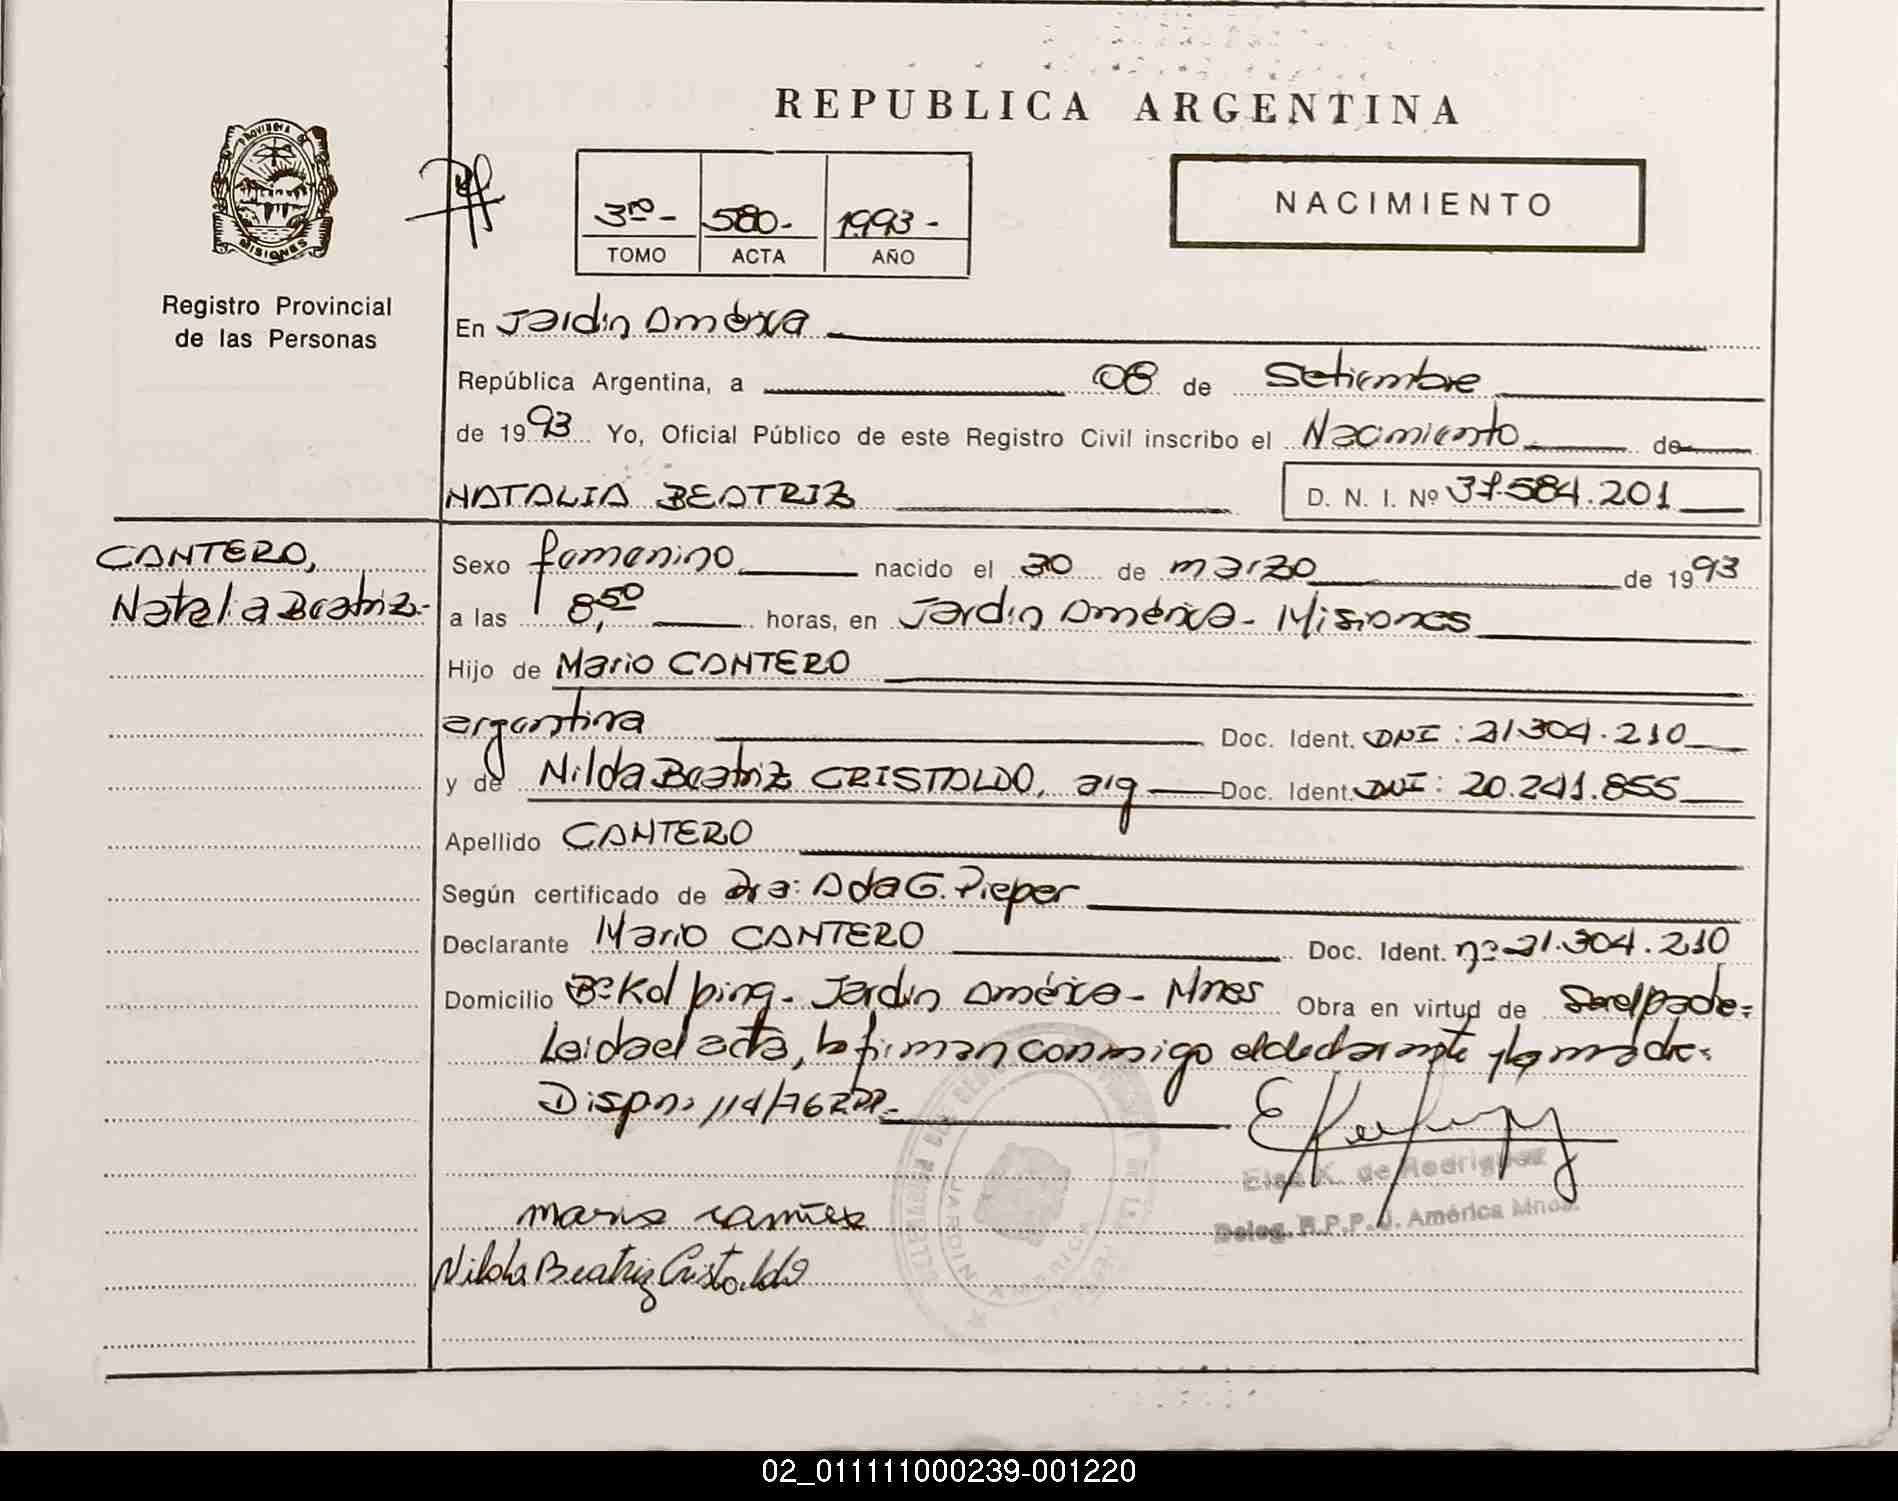 REPUBLICA ARGENTINA
PROVINCIA DE MISIONES
Registro Provincial
de las Personas
3ro - 580 - 1993 -
TOMO ACTA AÑO
NACIMIENTO
En Jardin América
República Argentina, a 08 de Setiembre
de 1993 Yo, Oficial Público de este Registro Civil inscribo el Nacimiento de
NATALIA BEATRIZ D. N. I. Nº 37.584.201
CANTERO,
Natalia Beatriz.-
Sexo femenino nacido el 30 de marzo de 1993
a las 8,50 horas, en Jardin América - Misiones
Hijo de Mario CANTERO
argentina Doc. Ident. DNI : 21.304.210
y de Nilda Beatriz CRISTALDO, arg Doc. Ident. DNI : 20.241.855
Apellido CANTERO
Según certificado de Dra: Ada G. Pieper
Declarante Mario CANTERO Doc. Ident. nº 21.304.210
Domicilio Bº Kolping - Jardin América - Mnes Obra en virtud de Ser el padre -
Leida el acta, la firman conmigo el declarante y la madre.
Dispn: 114/76
Elsa K. de Rodriguez
Deleg. R.P.P. J. América Mnes.
Nilda Beatriz Cristaldo
02_011111000239-001220